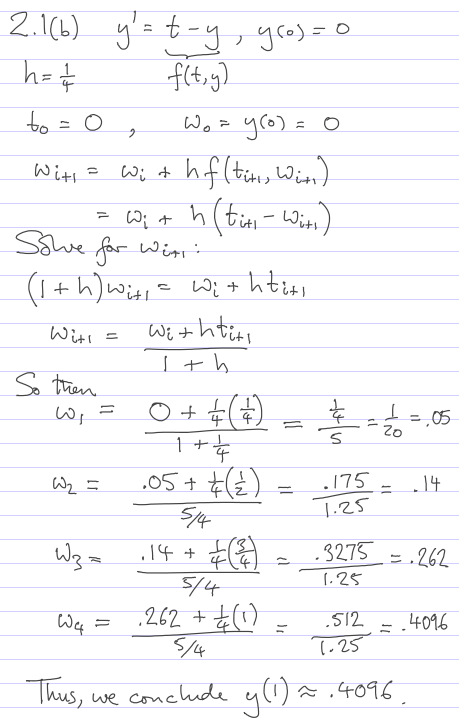 2.1(b) y' = t - y, y(0) = 0
h = 1/4 f(t,y)
t₀ = 0 , w₀ = y(0) = 0
wᵢ₊₁ = wᵢ + h f(tᵢ₊₁, wᵢ₊₁)
= wᵢ + h(tᵢ₊₁ - wᵢ₊₁)
Solve for wᵢ₊₁ :
(1 + h)wᵢ₊₁ = wᵢ + htᵢ₊₁
wᵢ₊₁ = (wᵢ + htᵢ₊₁)/(1 + h)
So then
w₁ = (0 + 1/4(1/4))/(1 + 1/4) = (1/4)/5 = 1/20 = .05
w₂ = (.05 + 1/4(1/2))/(5/4) = .175/1.25 = .14
w₃ = (.14 + 1/4(3/4))/(5/4) = .3275/1.25 = .262
w₄ = (.262 + 1/4(1))/(5/4) = .512/1.25 = .4096
Thus, we conclude y(1) ≈ .4096.